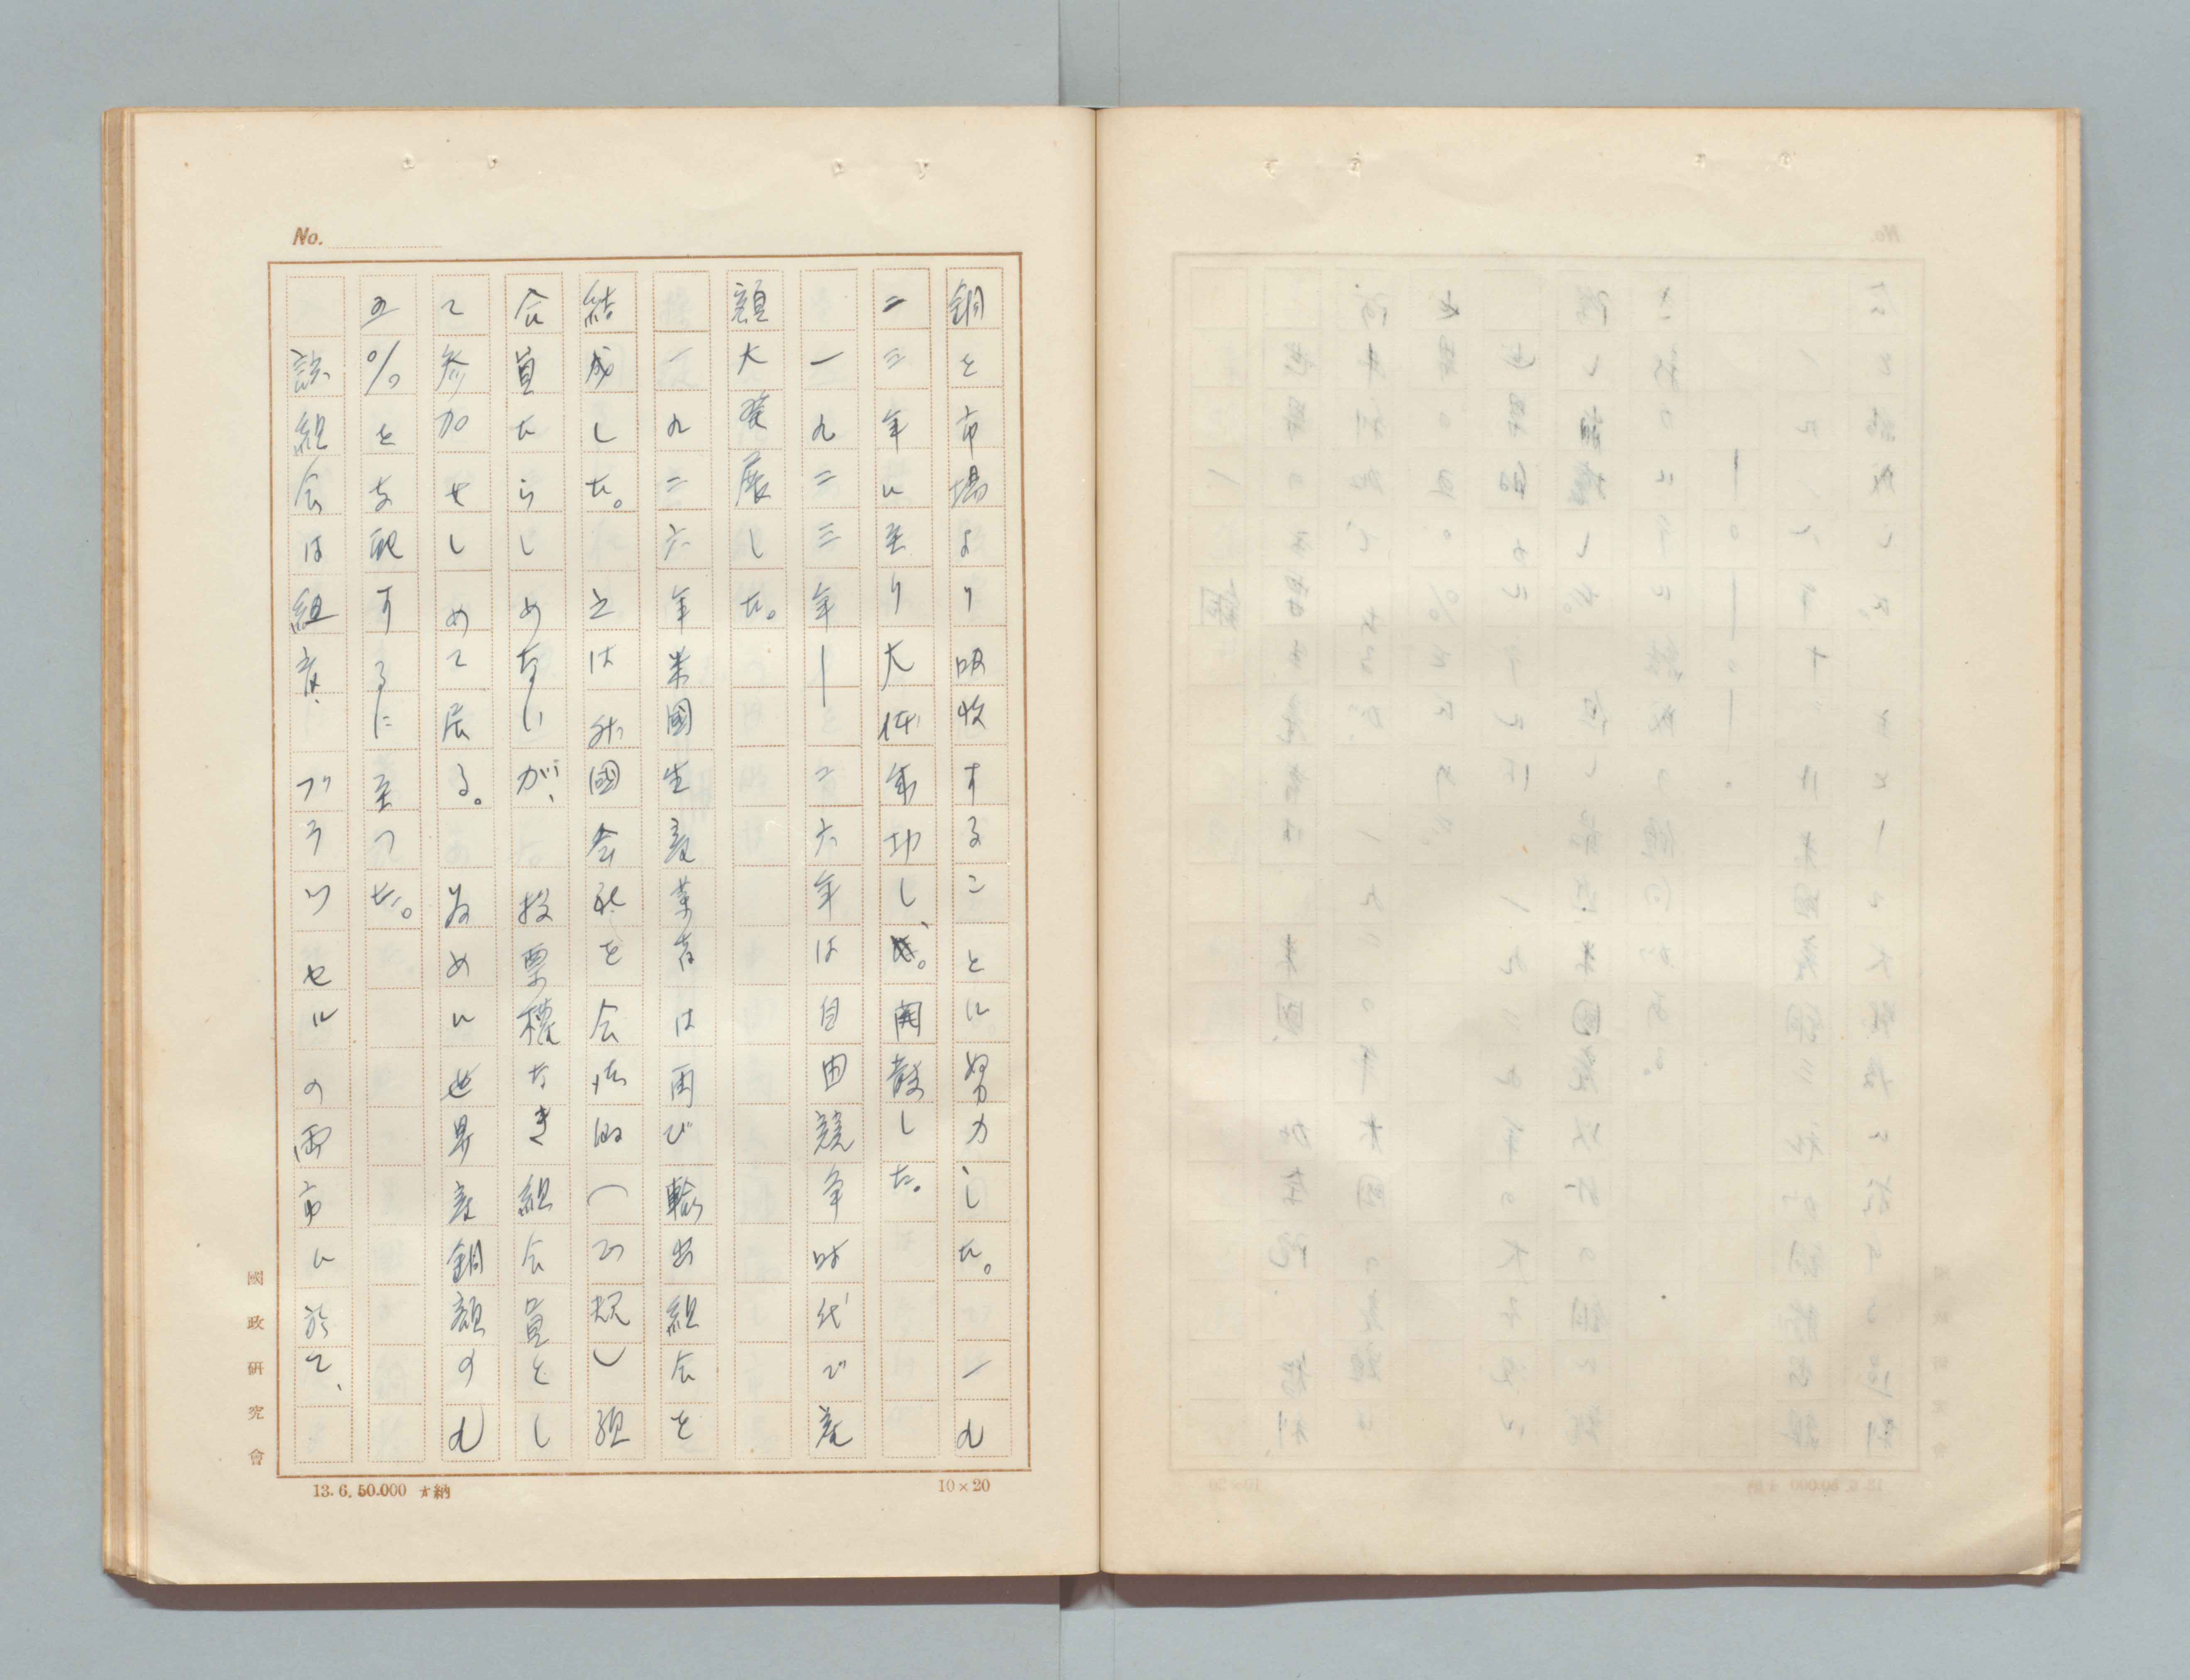 No.
銅を市場より吸收することに努力した。一九
二三年に至り大体成功し、開散した。
一九二三年―二六年は自由競争時代で産
額大発展した。
一九二六年米國生産業者は再び輸出組合を
結成した。之は外國会社を会法的(つ規)組
合員たらしめないが、投票権なき組合員とし
て参加せしめて居る。為めに世界産銅額の九
五%を支配するに至つた。
該組合は組育、ブラツセルの両市に於て、
國政研究會
13.6.50.000 オ納
10×20